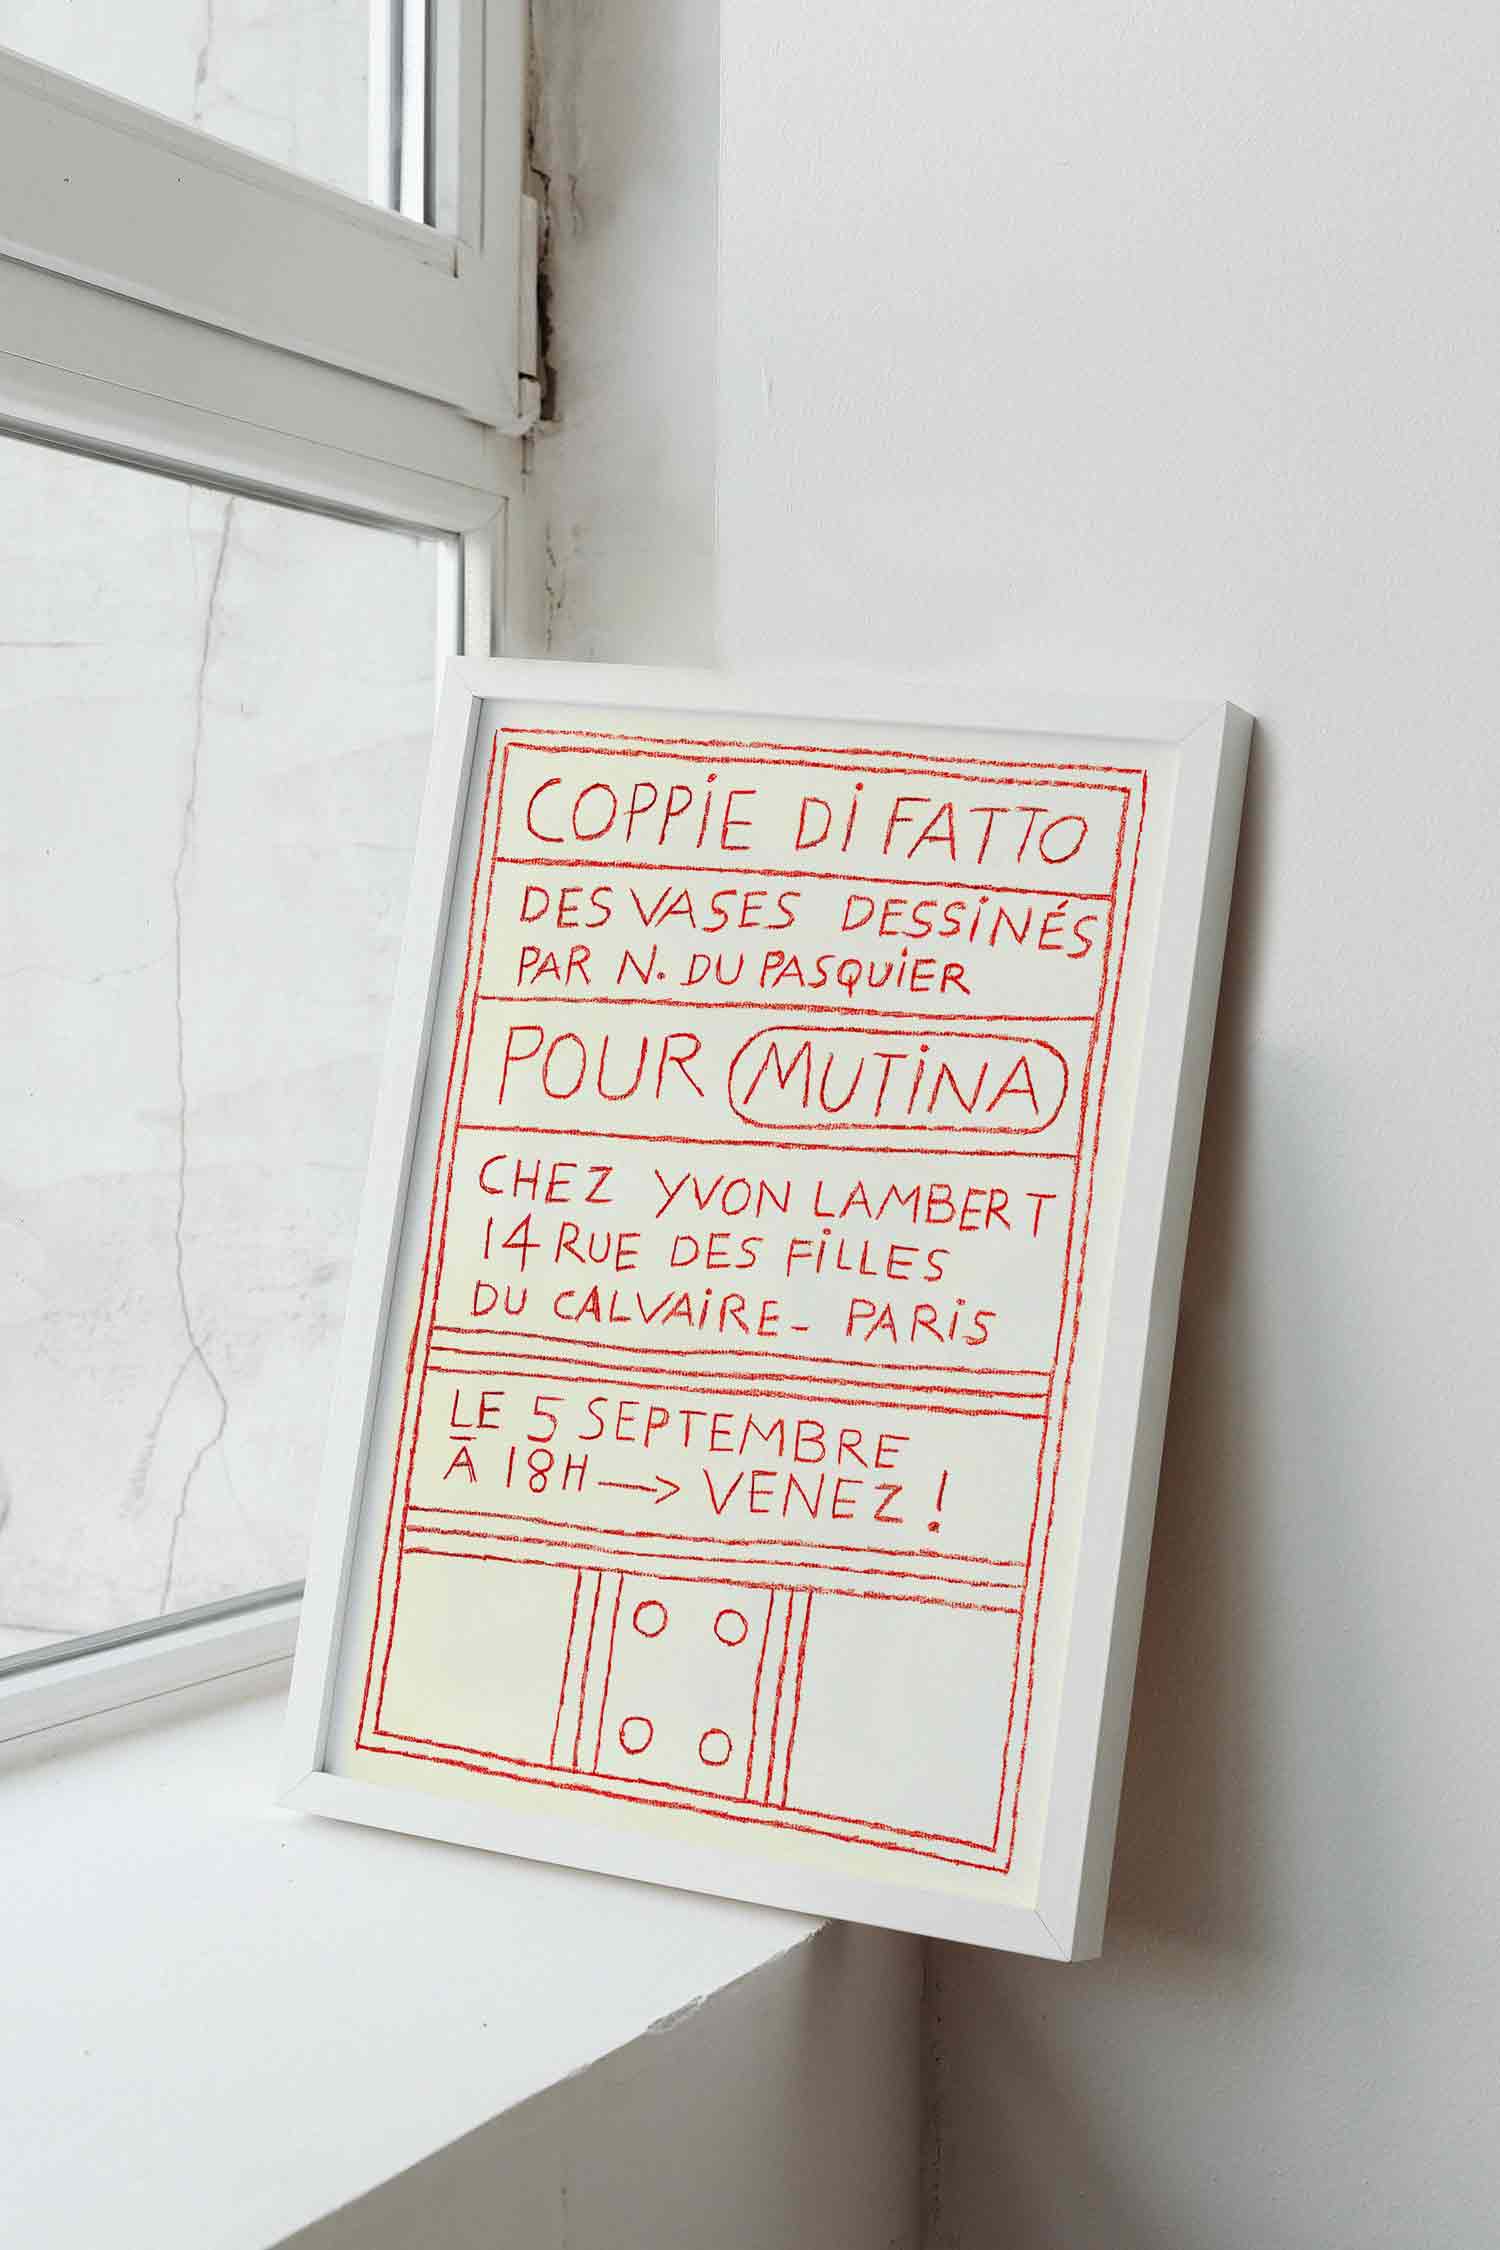 COPPiE Di FATTO
DES VASES DESSiNÉS
PAR N. DU PASQUiER
POUR MUTiNA
CHEZ YVON LAMBERT
14 RUE DES FiLLES
DU CALVAiRE - PARiS
LE 5 SEPTEMBRE
À 18H → VENEZ !